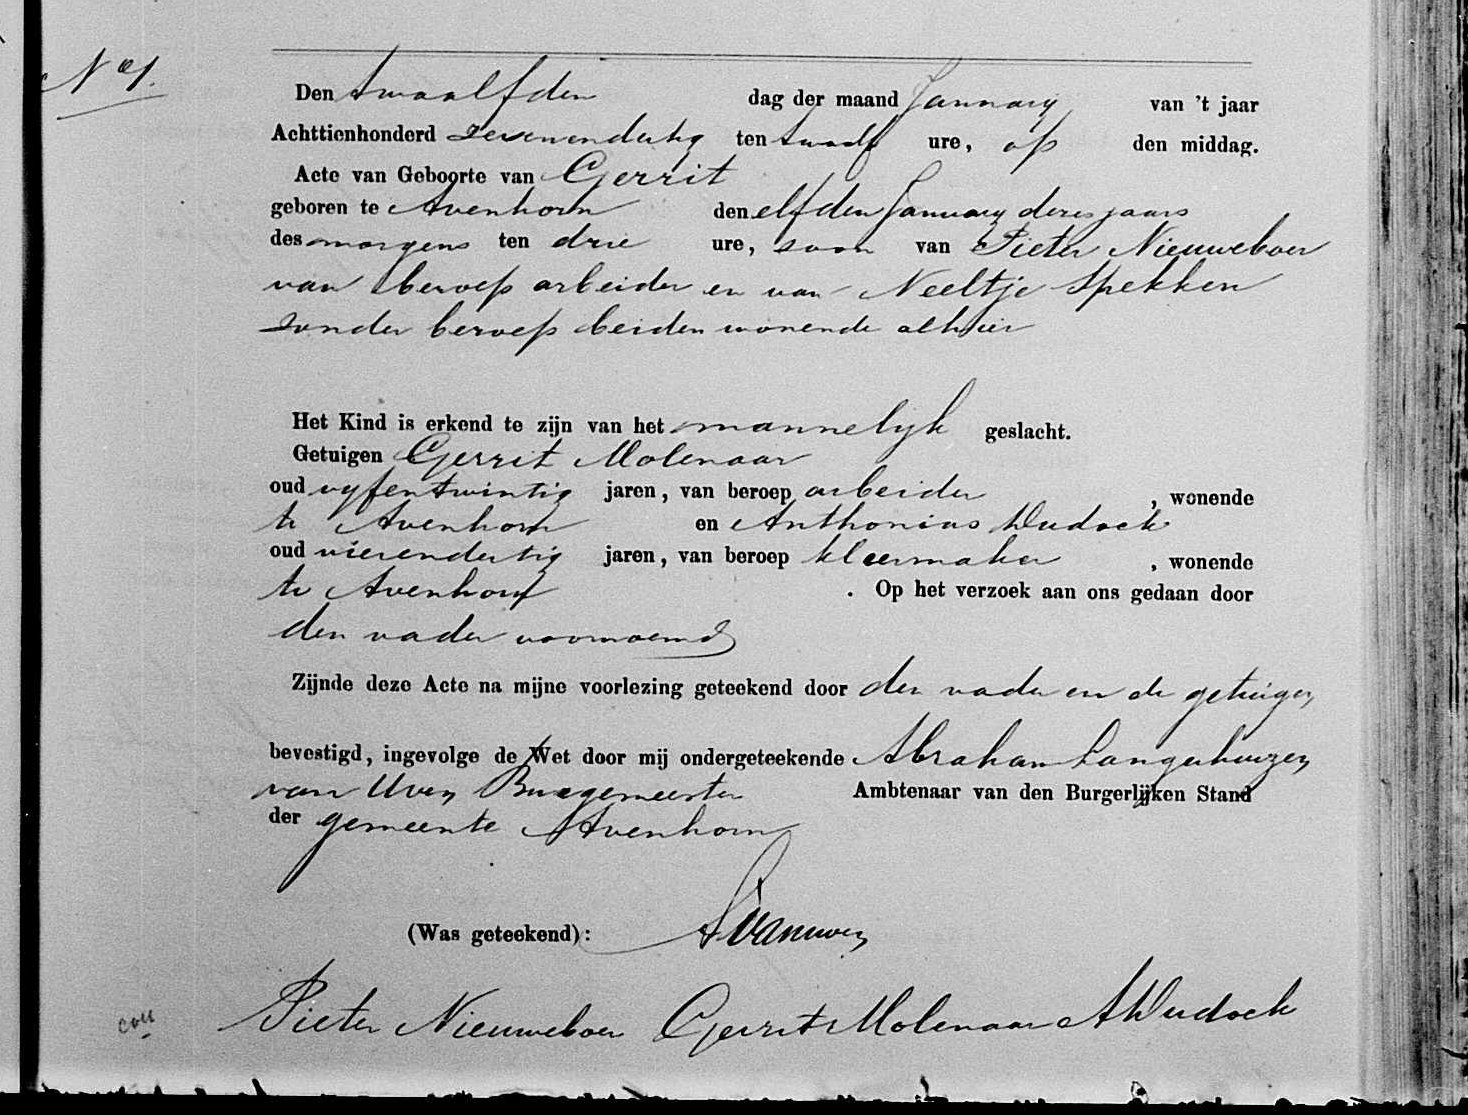 No 1.
Den twaalfden dag der maand January van 't jaar
Achttienhonderd zevenendertig ten twaalf ure, op den middag.
Acte van Geboorte van Gerrit
geboren te Avenhorn den elfden January dezes jaars
des morgens ten drie ure, zoon van Pieter Nieuweboer
van beroep arbeider en van Neeltje Spekken
zonder beroep beiden wonende alhier
Het Kind is erkend te zijn van het mannelyk geslacht.
Getuigen Gerrit Molenaar
oud vyfentwintig jaren, van beroep arbeider, wonende
te Avenhorn en Anthonius Dudock
oud vierendertig jaren, van beroep kleermaker, wonende
te Avenhorn. Op het verzoek aan ons gedaan door
den vader voornoemd
Zijnde deze Acte na mijne voorlezing geteekend door den vader en de getuigen
bevestigd, ingevolge de Wet door mij ondergeteekende Abraham Langenhuizen
van Uven Burgemeester Ambtenaar van den Burgerlijken Stand
der gemeente Avenhorn
(Was geteekend): A van uven
Pieter Nieuweboer Gerrit Molenaar A Dudock